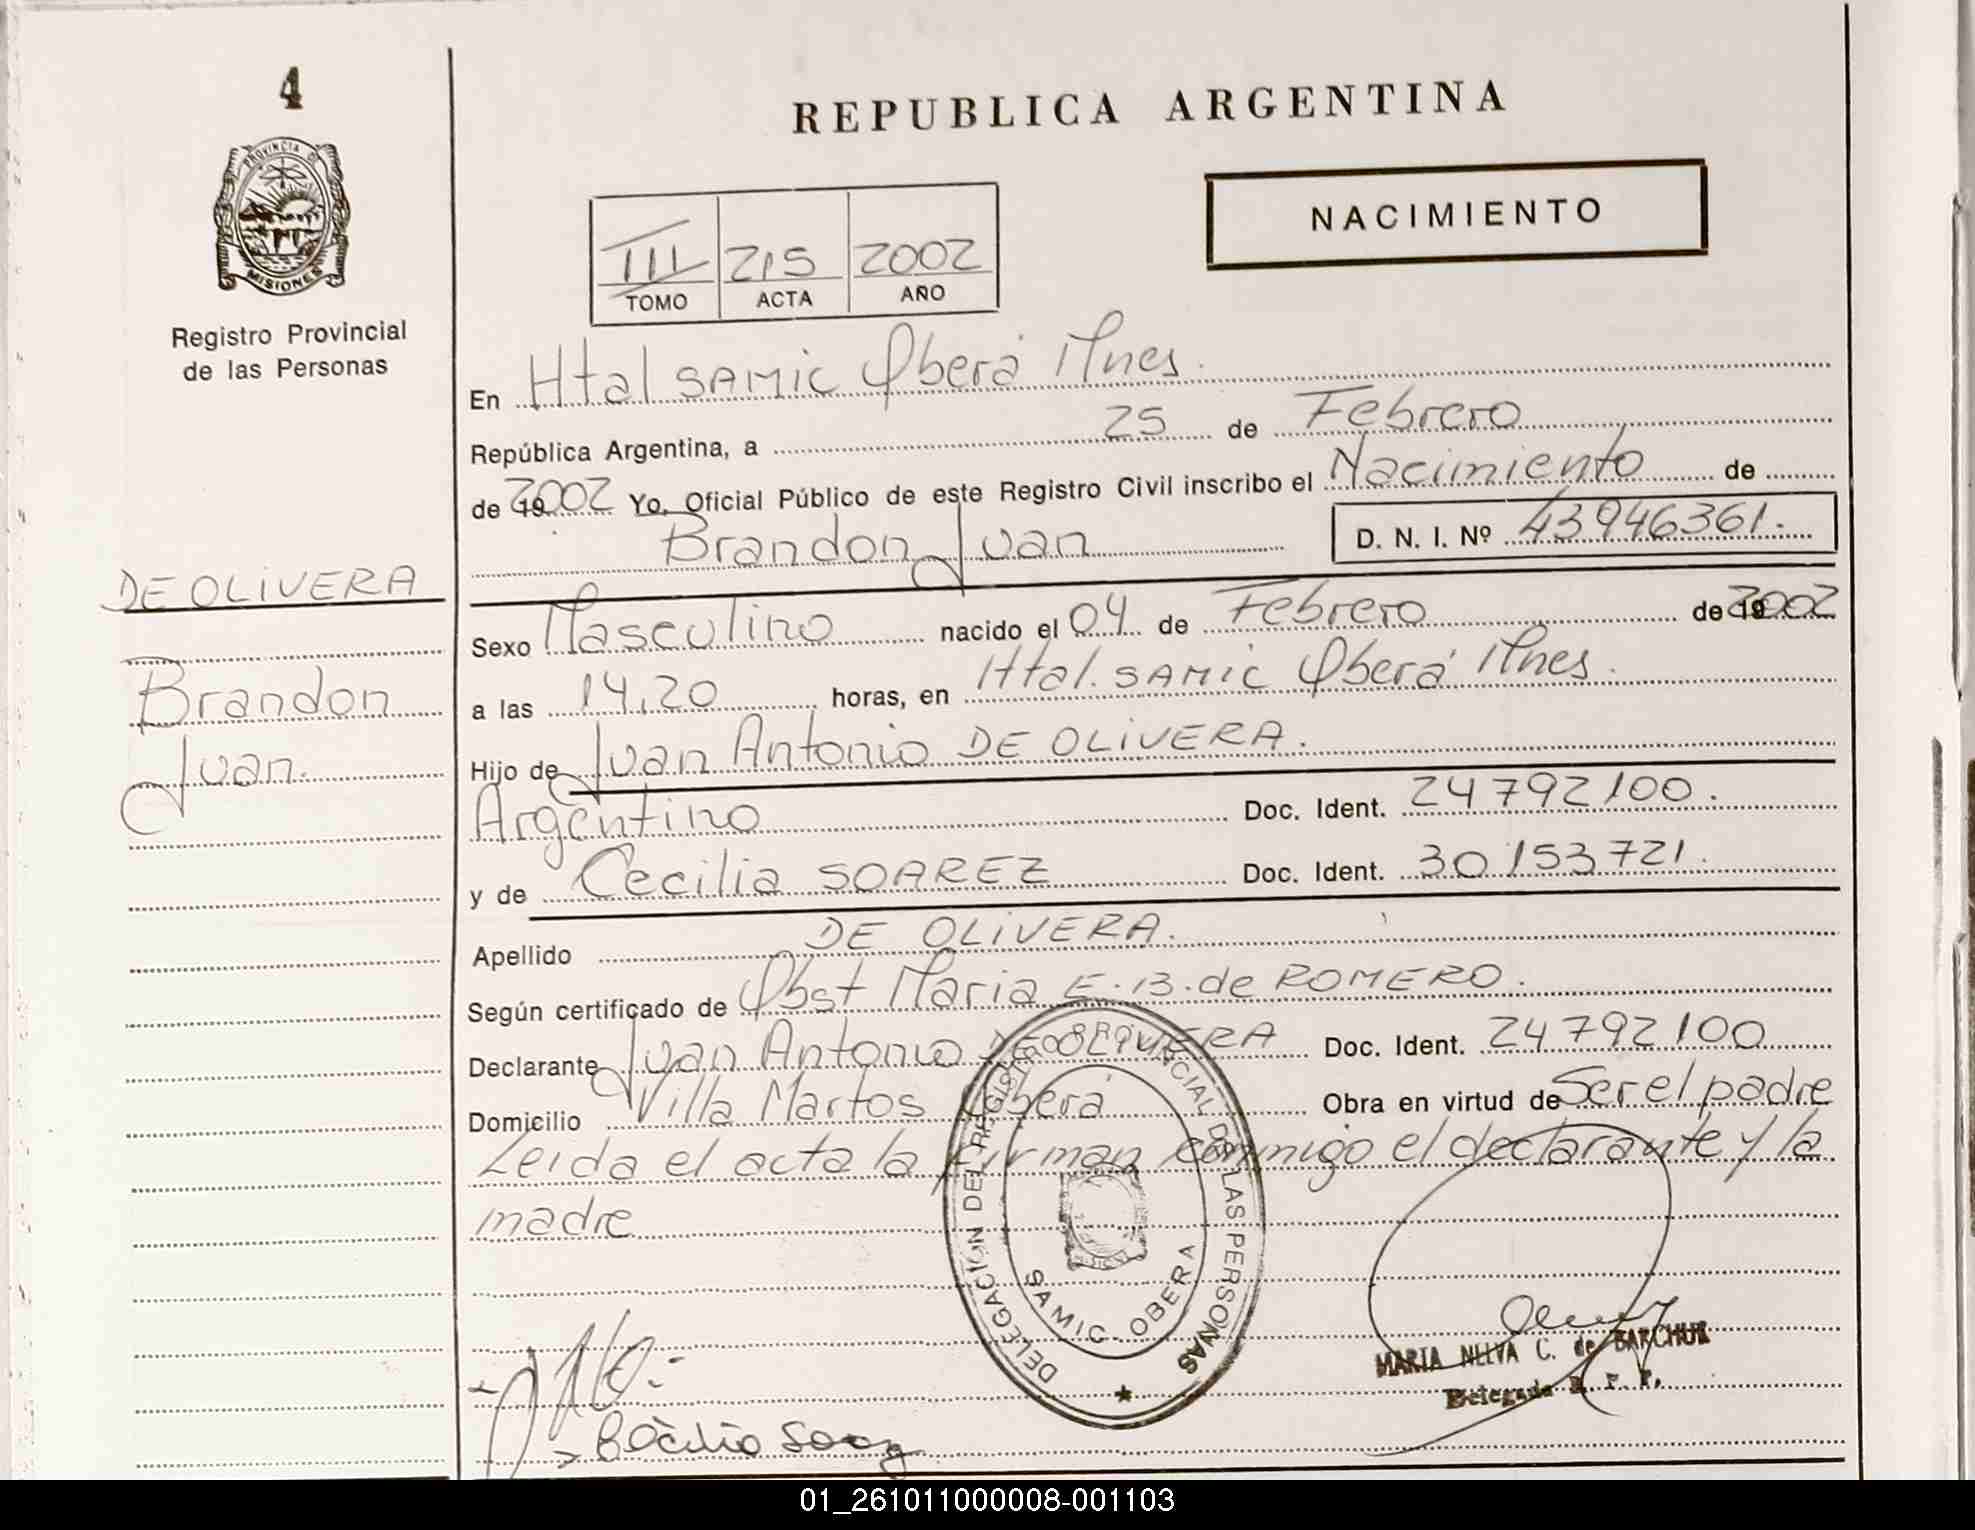 4
PROVINCIA DE
MISIONES
Registro Provincial
de las Personas
DE OLIVERA
Brandon
Juan.
REPUBLICA ARGENTINA
NACIMIENTO
III 215 2002
TOMO ACTA AÑO
En Htal SAMIC Oberá Mnes.
República Argentina, a 25 de Febrero
de 2002 Yo, Oficial Público de este Registro Civil inscribo el Nacimiento de
Brandon Juan D. N. I. Nº 43946361.
Sexo Masculino nacido el 04 de Febrero de 2002
a las 14,20 horas, en Htal. SAMIC Oberá Mnes.
Hijo de Juan Antonio DE OLIVERA.
Argentino Doc. Ident. 24792100.
y de Cecilia SOAREZ Doc. Ident. 30153721.
Apellido DE OLIVERA.
Según certificado de Obst Maria E. B. de ROMERO.
Declarante Juan Antonio DE OLIVERA Doc. Ident. 24792100
Domicilio Villa Martos Oberá Obra en virtud de Ser el padre
Leida el acta la firman conmigo el declarante y la
madre
DELEGACION DEL REGISTRO PROVINCIAL DE LAS PERSONAS
SAMIC. OBERA
MARIA NELVA C. de BARCHUK
Delegada R. P. P.
01_261011000008-001103